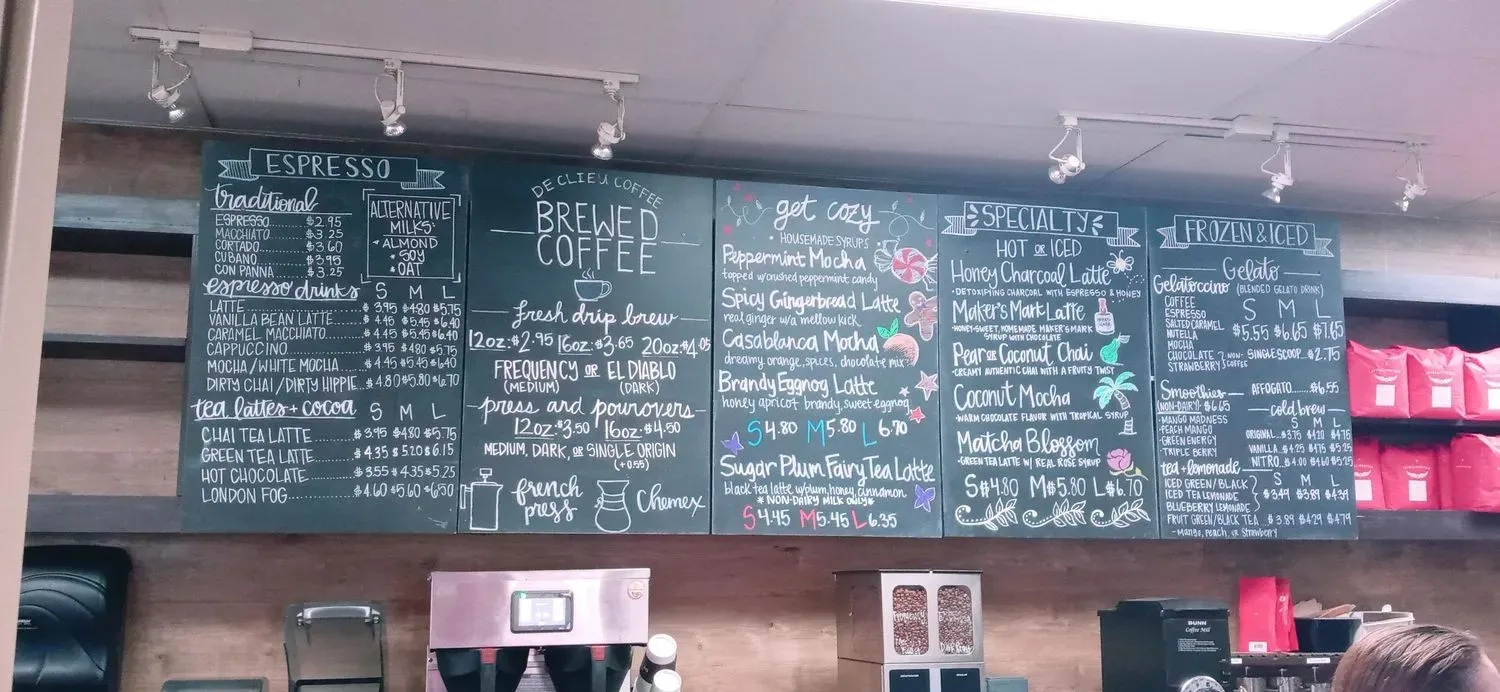 ESPRESSO
traditional
ESPRESSO........$2.95
MACCHIATO......$3.25
CORTADO.........$3.60
CUBANO..........$3.95
CON PANNA......$3.25
ALTERNATIVE
MILKS:
• ALMOND
• SOY
• OAT
espresso drinks S M L
LATTE $3.95 $4.80 $5.75
VANILLA BEAN LATTE $4.45 $5.45 $6.40
CARAMEL MACCHIATO $4.45 $5.45 $6.40
CAPPUCCINO $3.95 $4.80 $5.75
MOCHA/WHITE MOCHA $4.45 $5.45 $6.40
DIRTY CHAI/DIRTY HIPPIE $4.80 $5.80 $6.70
tea lattes + cocoa S M L
CHAI TEA LATTE $3.95 $4.80 $5.75
GREEN TEA LATTE $4.35 $5.20 $6.15
HOT CHOCOLATE $3.55 $4.35 $5.25
LONDON FOG $4.60 $5.60 $6.50
DE CLIEU COFFEE
BREWED
COFFEE
fresh drip brew
12oz: $2.95 16oz: $3.65 20oz: $4.05
FREQUENCY OR EL DIABLO
(MEDIUM) (DARK)
press and pourovers
12oz: $3.50 16oz: $4.50
MEDIUM, DARK, OR SINGLE ORIGIN
(+0.55)
french
press
Chemex
get cozy
• HOUSEMADE SYRUPS
Peppermint Mocha
topped w/crushed peppermint candy
Spicy Gingerbread Latte
real ginger w/a mellow kick
Casablanca Mocha
dreamy orange, spices, chocolate mix
Brandy Eggnog Latte
honey apricot brandy, sweet eggnog
S 4.80 M 5.80 L 6.70
Sugar Plum Fairy Tea Latte
black tea latte w/plum, honey, cinnamon
*NON-DAIRY MILK ONLY*
S 4.45 M 5.45 L 6.35
SPECIALTY
HOT OR ICED
Honey Charcoal Latte
• DETOXIFYING CHARCOAL WITH ESPRESSO & HONEY
Maker's Mark Latte
• HONEY-SWEET, HOMEMADE MAKER'S MARK
SYRUP WITH CHOCOLATE
Pear OR Coconut Chai
• CREAMY AUTHENTIC CHAI WITH A FRUITY TWIST
Coconut Mocha
• WARM CHOCOLATE FLAVOR WITH TROPICAL SYRUP
Matcha Blossom
• GREEN TEA LATTE W/ REAL ROSE SYRUP
S $4.80 M $5.80 L $6.70
FROZEN & ICED
Gelato
Gelatoccino (BLENDED GELATO DRINK)
S M L
COFFEE
ESPRESSO
SALTED CARAMEL
NUTELLA
MOCHA
CHOCOLATE
STRAWBERRY
NON-COFFEE
$5.55 $6.65 $7.65
SINGLE SCOOP...$2.75
AFFOGATO......$6.55
Smoothies
(NON-DAIRY) $6.65
• MANGO MADNESS
• PEACH MANGO
• GREEN ENERGY
TRIPLE BERRY
cold brew
S M L
ORIGINAL...$3.75 $4.20 $4.75
VANILLA...$4.25 $4.75 $5.25
NITRO...$4.00 $4.60 $5.25
tea + lemonade S M L
ICED GREEN/BLACK
ICED TEA LEMONADE
BLUEBERRY LEMONADE
$3.49 $3.89 $4.39
FRUIT GREEN/BLACK TEA $3.89 $4.29 $4.79
- Mango, Peach, or Strawberry
Dark Roast
BUNN
Coffee Mill